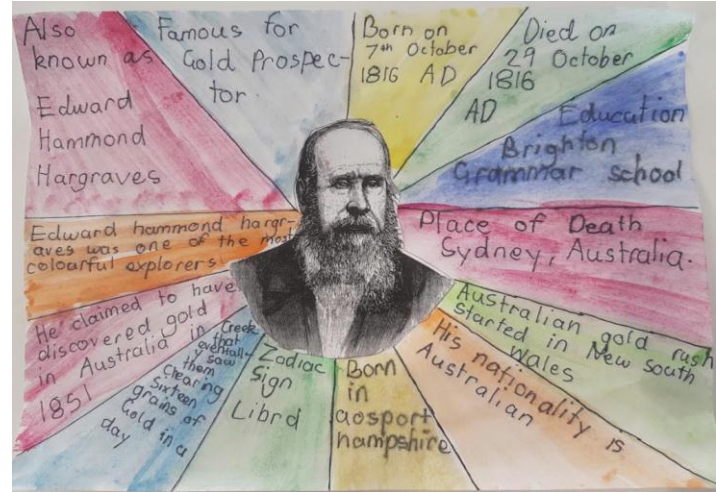 Also
known as
Edward
Hammond
Hargraves
Famous for
Gold Prospec-
tor
Born on
7th October
1816 AD
Died on
29 October
1816
AD
Education
Brighton
Grammar school
Place of Death
Sydney, Australia.
Australian gold rush
started in New south
Wales
His nationality is
Australian
Born
in
aosport
hampshire
Zodiac
Sign
Libra
Creek
that
eventall-
y saw
them
clearing
sixteen
grains of
Gold in a
day
He claimed to have
discovered gold
in Australia in
1851
Edward hammond hargr-
aves was one of the most
colourful explorers.